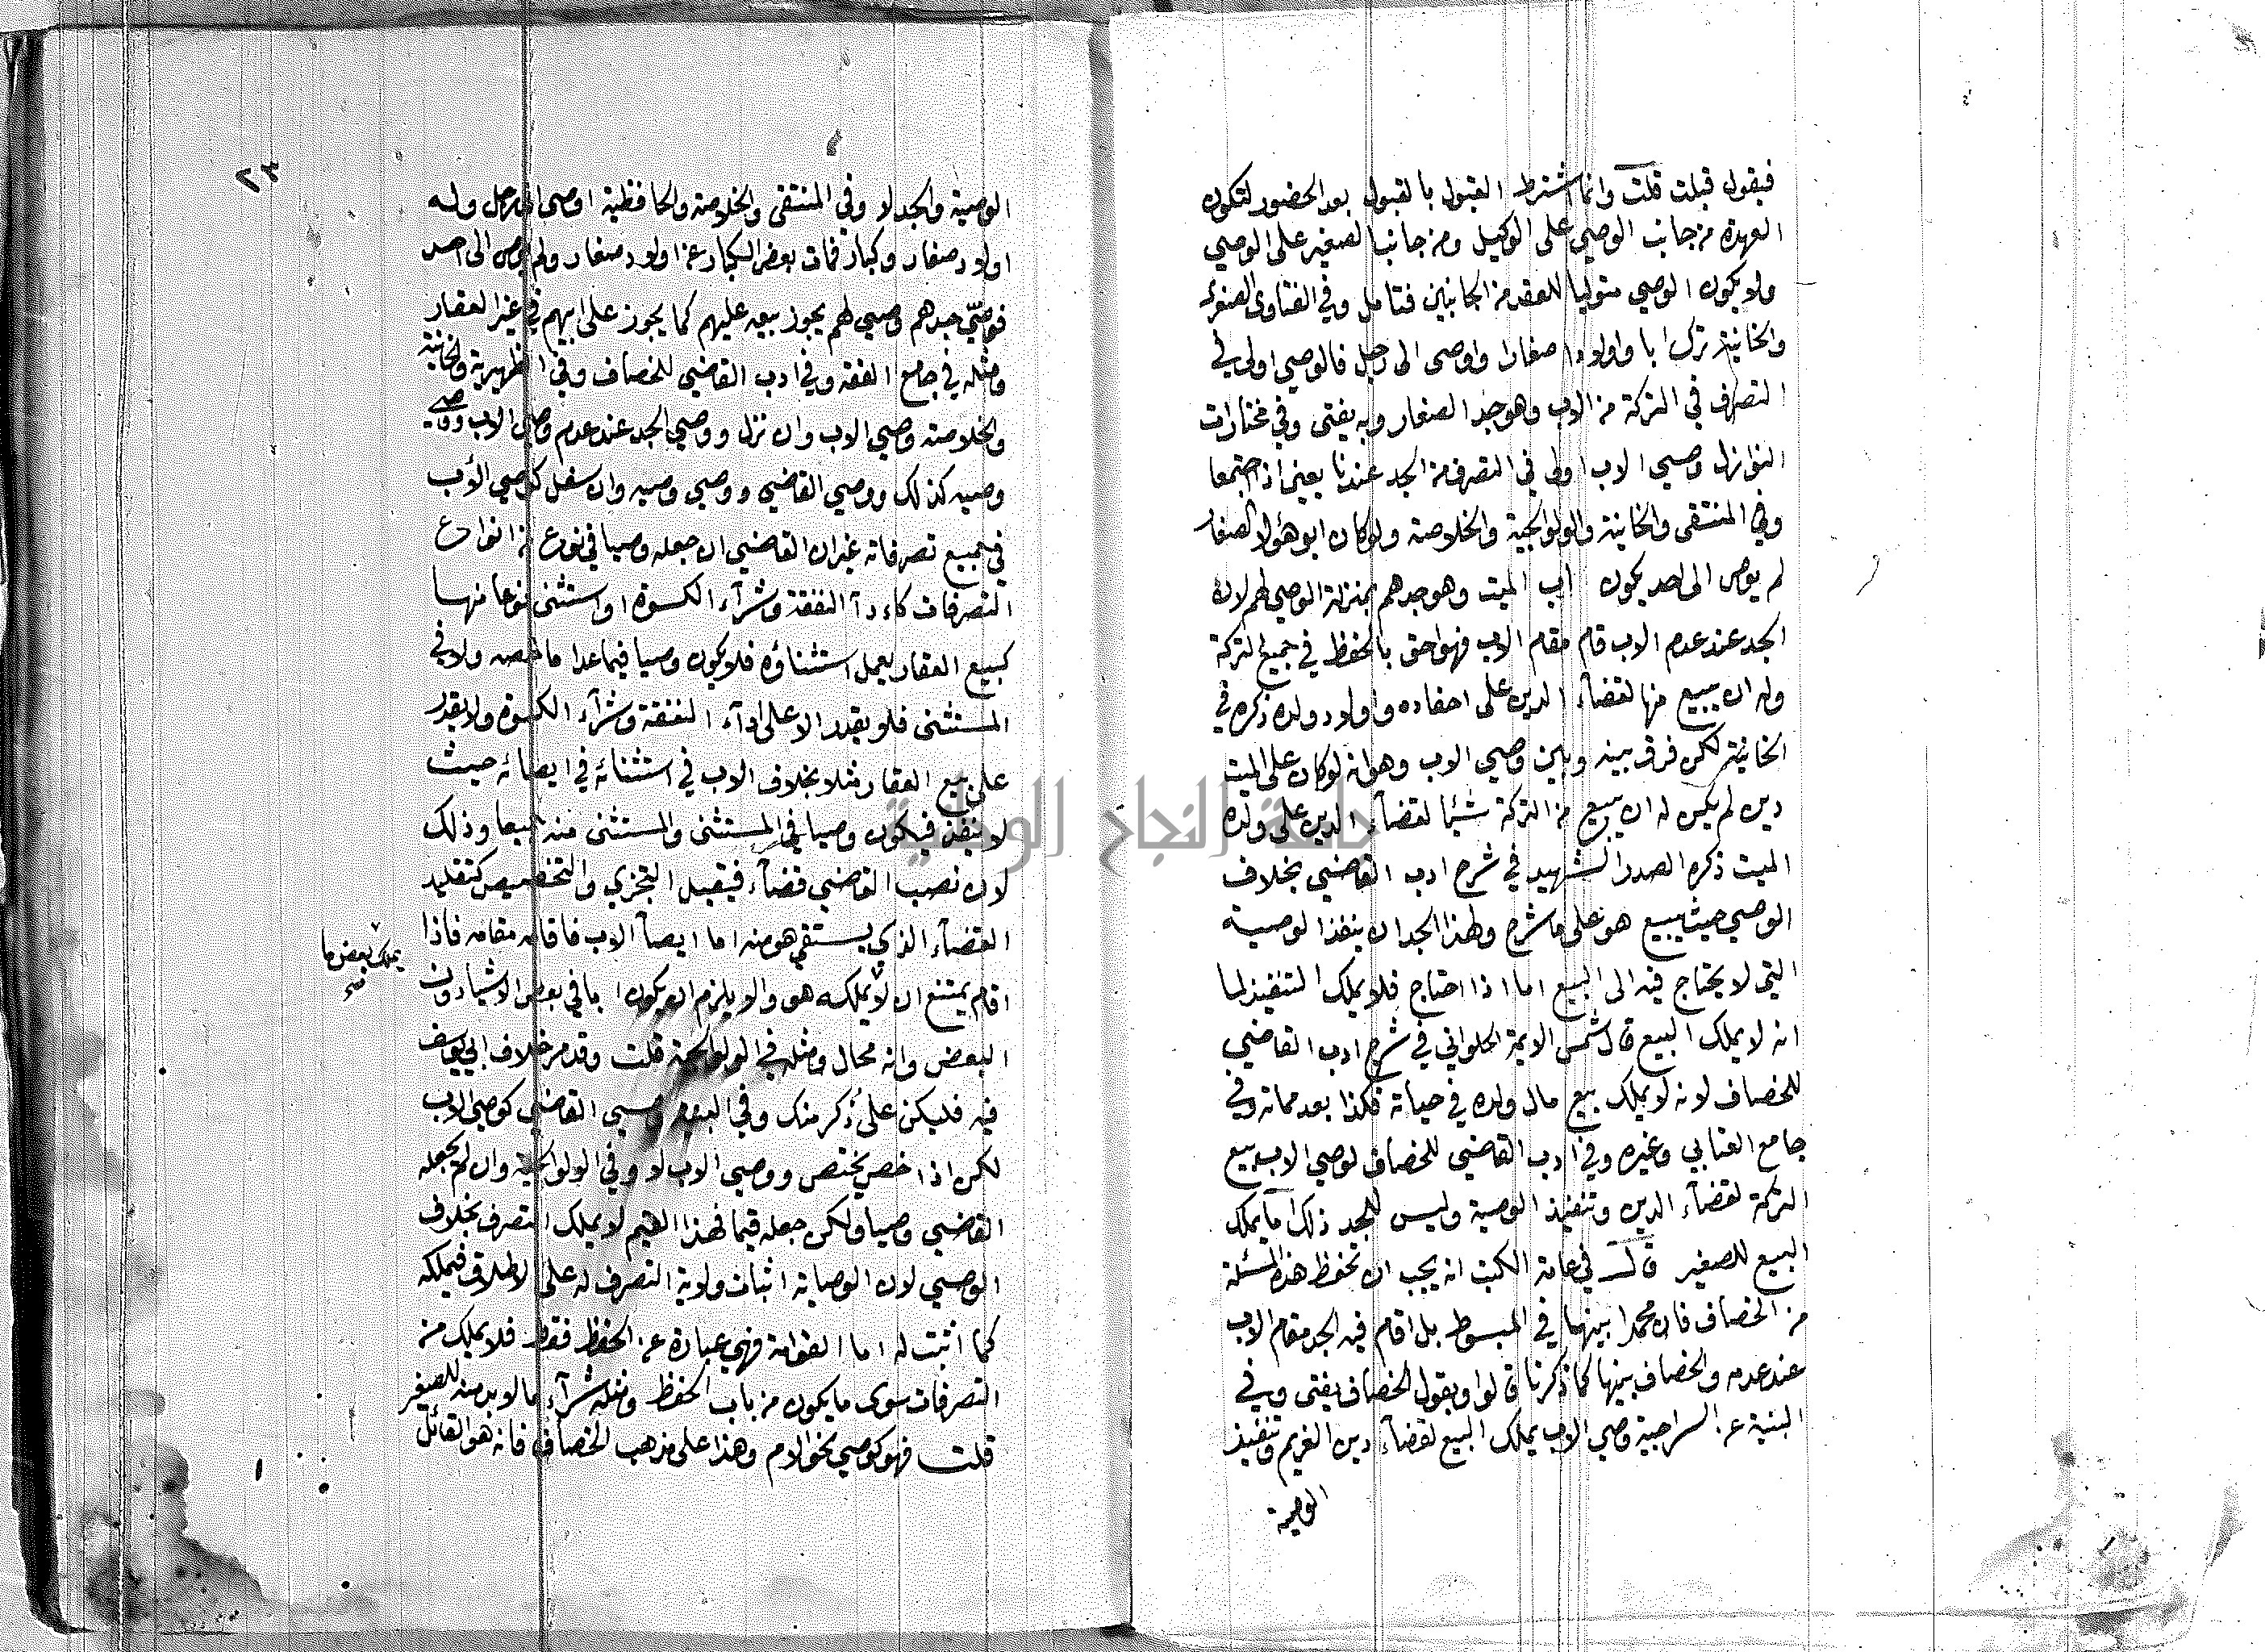 فيقول قبلت قلت وانما اشترط القبول بالقبول بعد الحضور لتكون
العهدة من جانب الوصي على الوكيل ومن جانب الصغير على الوصي
ولا يكون الوصي متوليا للعقد من الجانبين فتامل وفي الفتاوى الصغرى
والخانية ترك ابا واولادا صغارا واوصى الى رجل فالوصي اولى في
التصرف في التركة من الاب وهو جد الصغار وبه يفتى وفي مختارات
النوازل وصي الاب اولى في التصرف من الجد عندنا يعني اذا اجتمعا
وفي المنتقى والخانية والولوالجية والخلاصة ولو كان ابو هؤلاء الصغار
لم يوص الى احد يكون اب الميت وهو جدهم بمنزلة الوصي لهم لان
الجد عند عدم الاب قام مقام الاب فهو احق بالحفظ في جميع التركة
وله ان يبيع منها لقضاء الدين على احفاده واولاد ولده ذكره في
الخانية لكن فرق بينه وبين وصي الاب وهو انه لو كان على الميت
دين لم يكن له ان يبيع من التركة شيئا لقضاء الدين على ولده
الميت ذكره الصدر الشهيد في شرح ادب القاضي بخلاف
الوصي حيث يبيع هو على ما شرح ولهذا الجد ان ينفذ الوصية
التي لا يحتاج فيه الى البيع اما اذا احتاج فلا يملك التنفيذ لما
انه لا يملك البيع قال شمس الايمة الحلواني في شرح ادب القاضي
للخصاف لانه لا يملك بيع مال ولده في حياته فكذا بعد مماته وفي
جامع العتابي وغيره وفي ادب القاضي للخصاف لوصي الاب بيع
التركة لقضاء الدين وتنفيذ الوصية وليس للجد ذلك انما يملك
البيع للصغير قال في عامة الكتب انه يجب ان تحفظ هذه المسئلة
من الخصاف فان محمدا بينها في المبسوط بل اقام فيه الجد مقام الاب
عند عدمه والخصاف بينها كما ذكرنا قالوا وبقول الخصاف يفتى وفي
البنية عن السراجية وصي الاب يملك البيع لقضاء دين الغريم وتنفيذ
الوصية
٢٣
الوصية والجد لا وفي المنتقى والخلاصة والحافظية اوصى الى رجل وله
اولاد صغار وكبار فمات بعض الكبار عن اولاد صغار ولم يوص الى احد
فوصي جدهم وصي لهم يجوز بيعه عليهم كما يجوز على ابيهم في غير العقار
ومثله في جامع الفقه وفي ادب القاضي للخصاف وفي الظهيرية والخانية
والخلاصة وصي الاب وان نزل ووصي الجد عند عدم وصي الاب ووصي
وصيه كذلك ووصي القاضي ووصي وصيه وان سفل كوصي الأب
في جميع تصرفاته غير ان القاضي ان جعله وصيا في نوع من انواع
التصرفات كاداء النفقة وشراء الكسوة او استثنى نوعا منها
كبيع العقار يعمل استثناؤه فلا يكون وصيا فيما عدا ما خصه ولا في
المستثنى فلا يقدر الا على اداء النفقة وشراء الكسوة ولا يقدر
على بيع العقار مثلا بخلاف الاب في استثنائه في ايصائه حيث
لا ينفذ فيكون وصيا في المستثنى والمستثنى منه جميعا وذلك
لان نصب القاضي قضاء فيقبل التجزي والتخصيص كتقليد
القضاء الذي يستقي هو منه اما ايصاء الاب فاقامه مقامه فاذا
اقام يمتنع ان لا يملكه هو والا يلزم ان يكون ابا في بعض الاشياء دون
يملك بعض ما
صح
البعض وانه محال ومثله في الولوالجية قلت وقد مر خلاف ابي يوسف
فيه فليكن على ذكر منك وفي وصي القاضي كوصي الاب
لكن اذا خص يختص ووصي الاب لا وفي الولوالجية وان لم يجعله
القاضي وصيا ولكن جعله قيما فهذا القيم لا يملك التصرف بخلاف
الوصي لان الوصاية اثبات ولاية التصرف له على الاطلاق فيملكه
كما اثبت له اما القوامة فهي عبارة عن الحفظ فقط فلا يملك من
التصرفات سوى ما يكون من باب الحفظ ومثله شراء ما لا بد منه للصغير
قلت فهو كوصي نحو الام وهذا على مذهب الخصاف فانه هو القائل